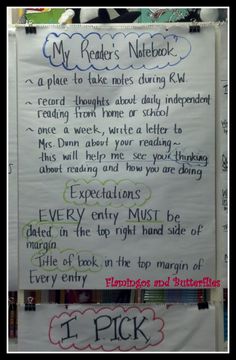 My Reader's Notebook
~ a place to take notes during R.W.
~ record thoughts about daily independent
reading from home or school
~ once a week, write a letter to
Mrs. Dunn about your reading ~
this will help me see your thinking
about reading and how you are doing
Expectations
EVERY entry MUST be
dated in the top right hand side of
margin
Title of book in the top margin of
Every entry
Flamingos and Butterflies
I PICK